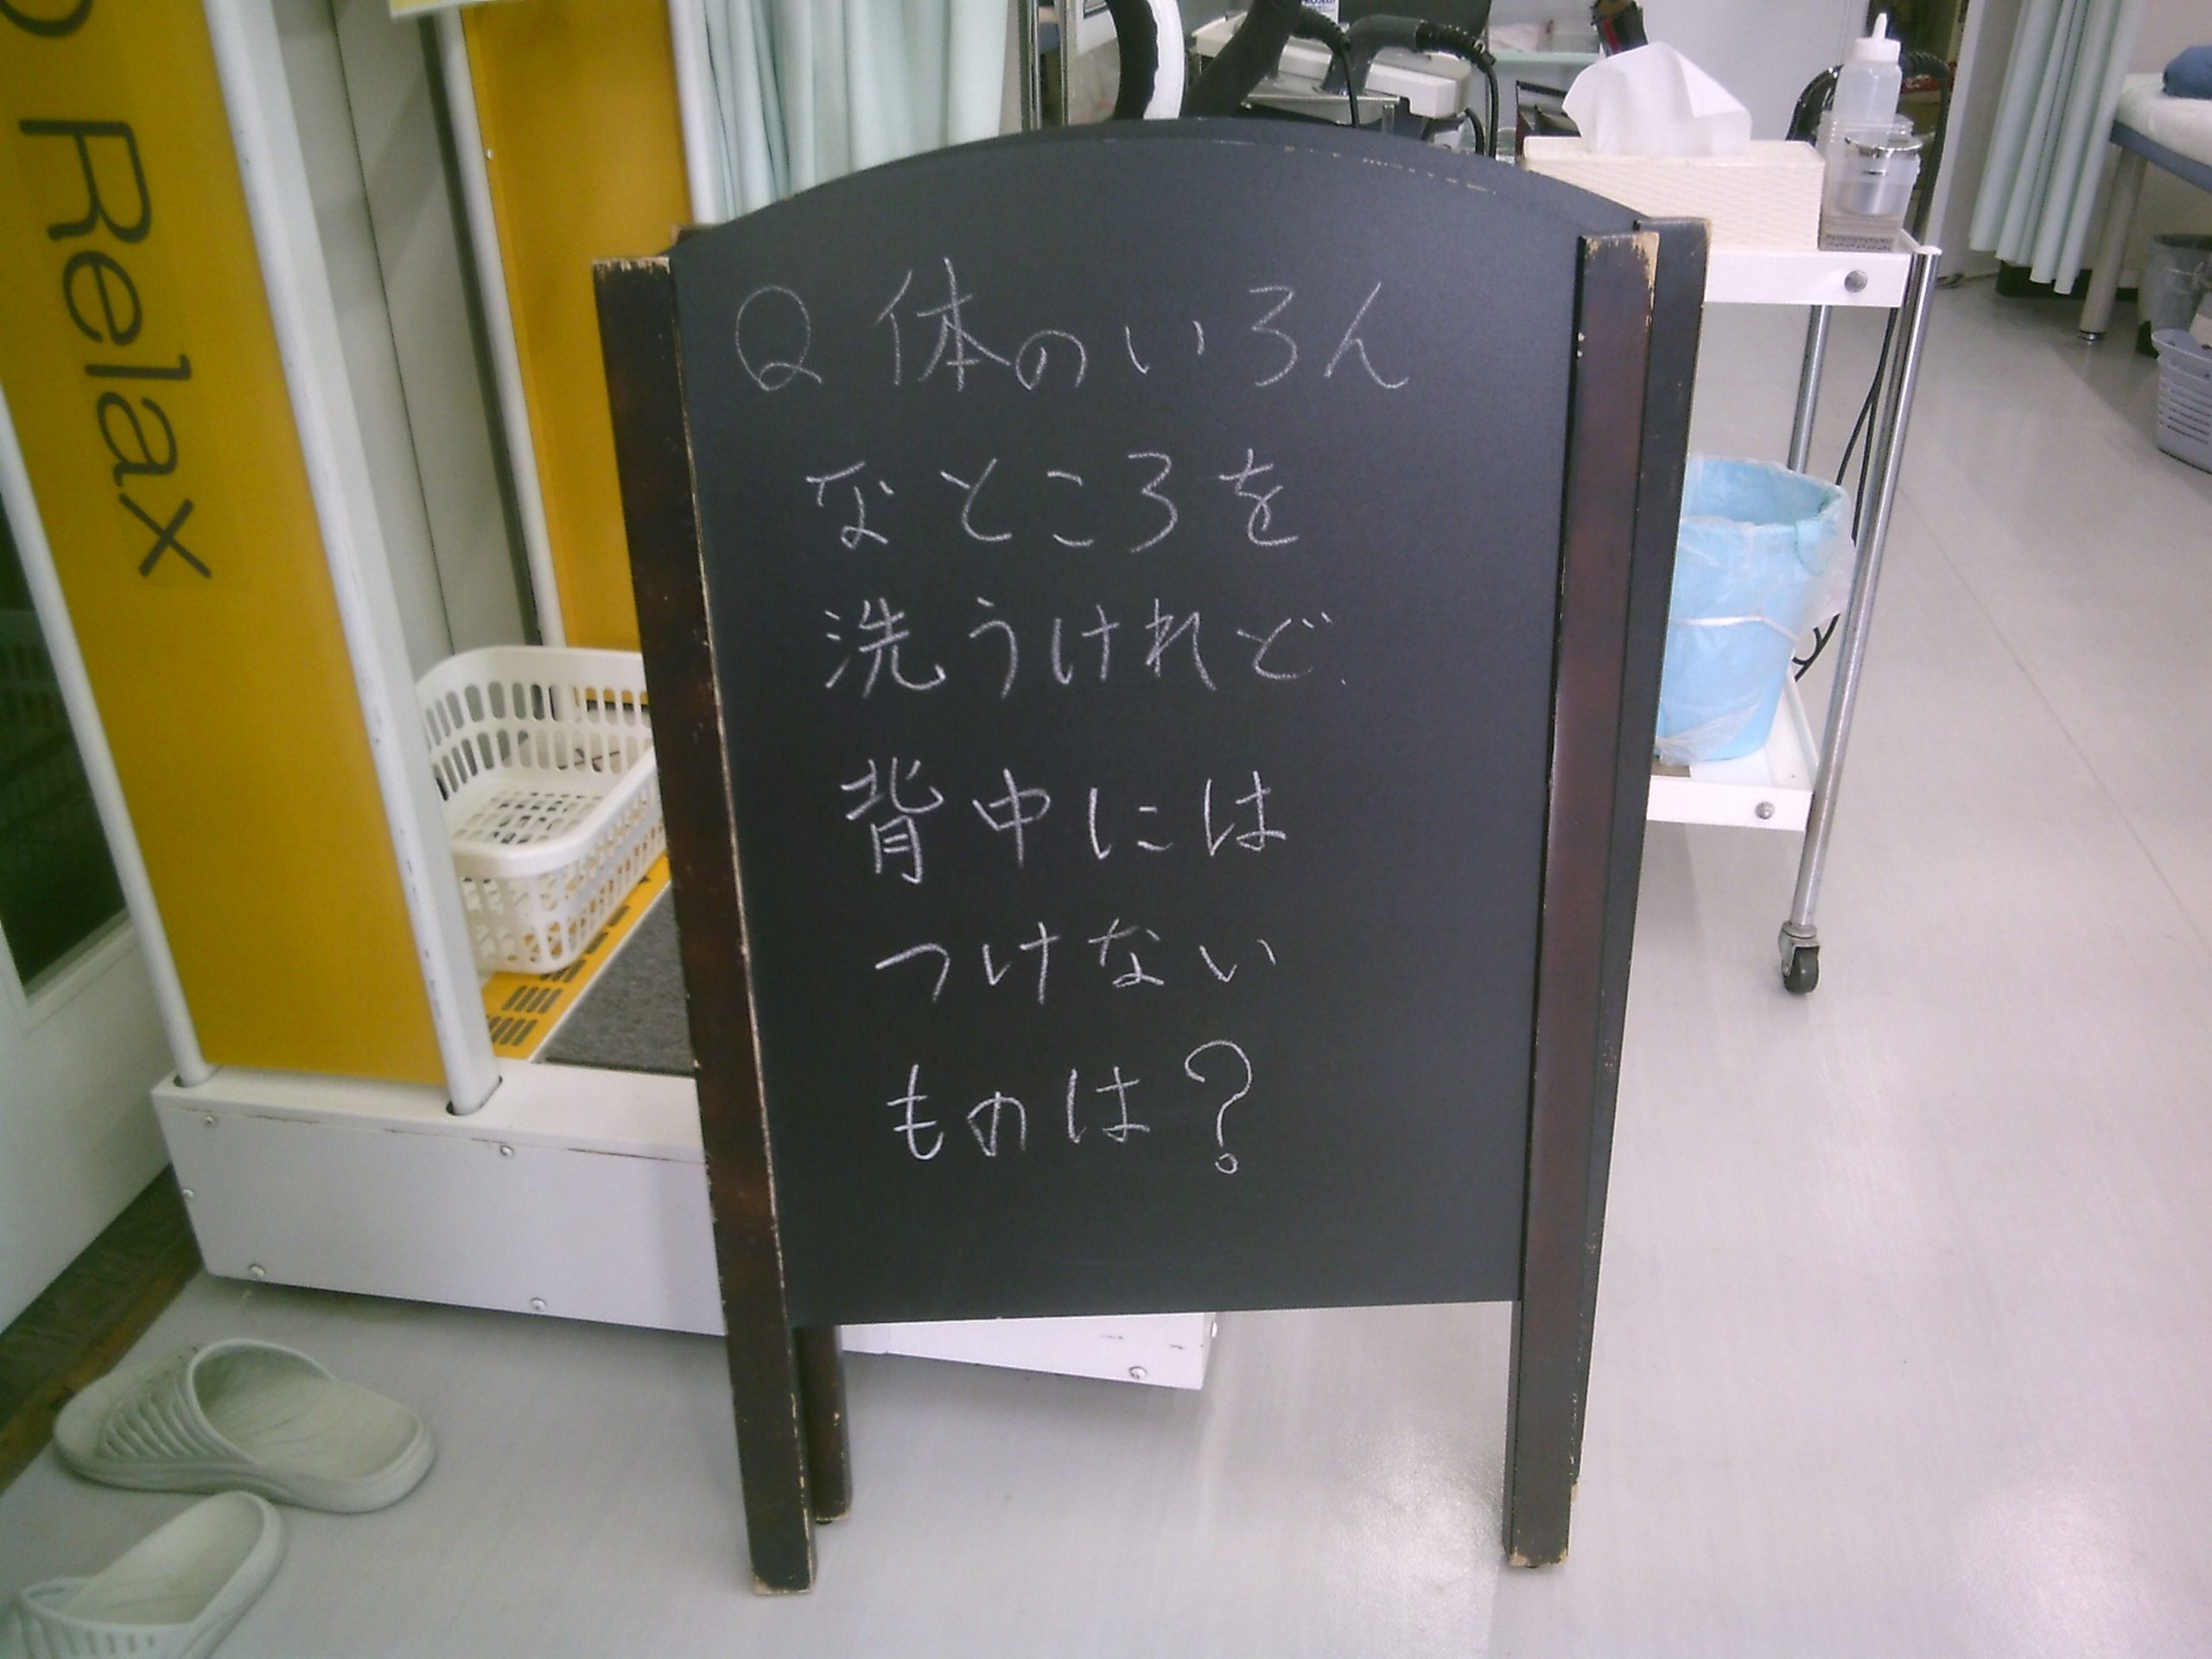 Relax
Q 体のいろん
なところを
洗うけれど、
背中には
つけない
ものは?